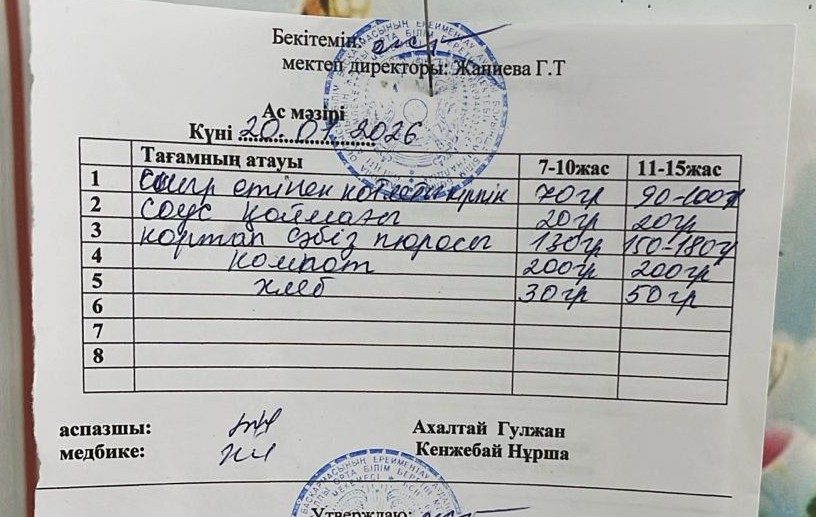 Бекітемін:
мектеп директоры: Жаниева Г.Т
Ас мәзірі
Күні 20.01.2026
Тағамның атауы 7-10жас 11-15жас
1 Сиыр етінен котлеті 70гр 90-100гр
2 Соус қаймағы 20гр 20гр
3 картап сәбіз пюросы 130гр 150-180гр
4 компот 200гр 200гр
5 хлеб 30гр 50гр
6
7
8
аспазшы: Ахалтай Гулжан
медбике: Кенжебай Нұрша
Утверждаю: